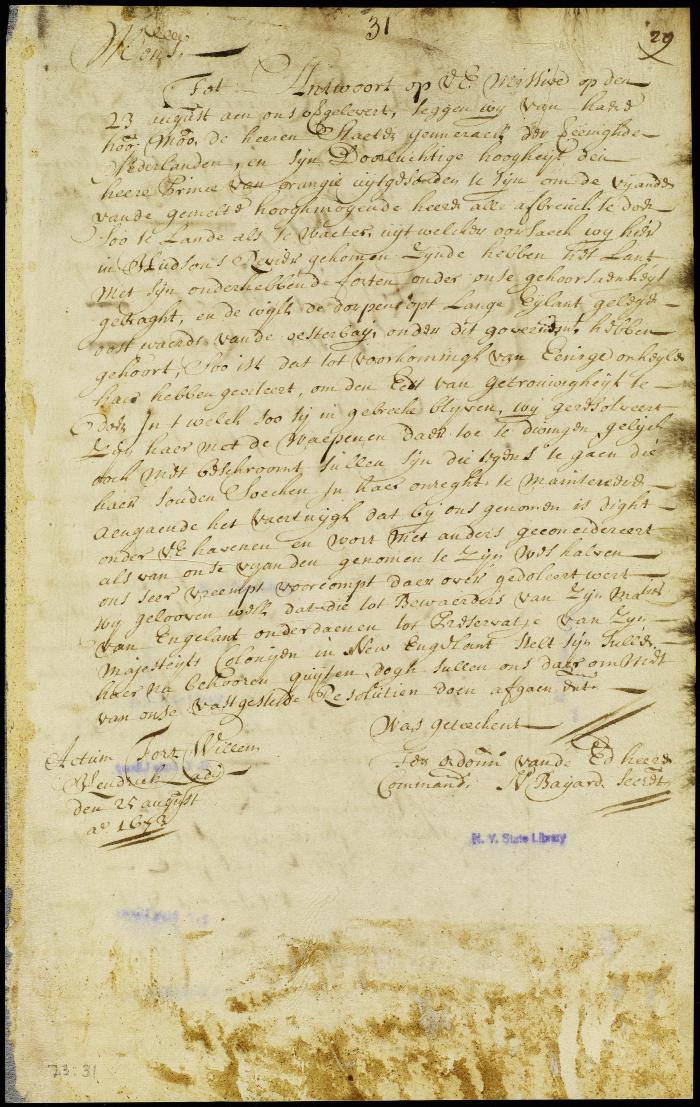 31
29
Mons.
Tot Antwoort op VE. missive op den
23 august aen ons opgelevert, seggen wy van haere
hoo: Moo: de heeren Staeten gennerael der Vereenighde
Nederlanden, en sijn Doorluchtige hoogheyt den
heere Prince van orangie uytgesonden te sijn om de vyanden
vande gemelte hooghmogende heeren alle afbreuck te doen
soo te Lande als te Waeter, uyt welcken oorsaeck wy hier
in Hudsons Revier gekomen zynde hebben het Lant
met sijn onderhebbende forten onder onse gehoorsaemheyt
gebraght, en dewijl de dorpen opt Lange Eylant geleegen
oost waerdt vande oesterbay, onder dit goverment hebben
gehoort, Soo ist dat tot voorkomingh van Eenige onheylen
haer hebben geciteert, om den Eedt van getrouwigheyt te
doen In t welck soo sij in gebreeke blyven, wij geresolveert
Zijn haer met de Waepenen daer toe te dwingen gelyck
oock niet beschroomt sullen sijn die tegens te gaen die
haer souden Soecken In haer onreght te mainteneren
Aengaende het Vaertuygh dat by ons genomen is dight
onder VE havenen en wort niet anders geconsidereert
als van onse vyanden genomen te zijn wes halven
ons seer vreempt voorcompt daer over gedoleert wert
wy gelooven well dat die tot Bewaerders van Zijn Maties
van Engelant onderdaenen tot Preservatie van Zijn
Majesteyts Colonijen in New Engelant stelt sijn sullen
haer na behooren quyten, dogh sullen ons daer om niet
van onse vastgestelde Resolutien doen afgaen
Was geteeckent
Actum Fort Willem
Hendrick
den 25 august
ao 1673
Ter ordonn vande Ed heeren
Command: N Bayard Secrets
N. Y. State Library
73:31